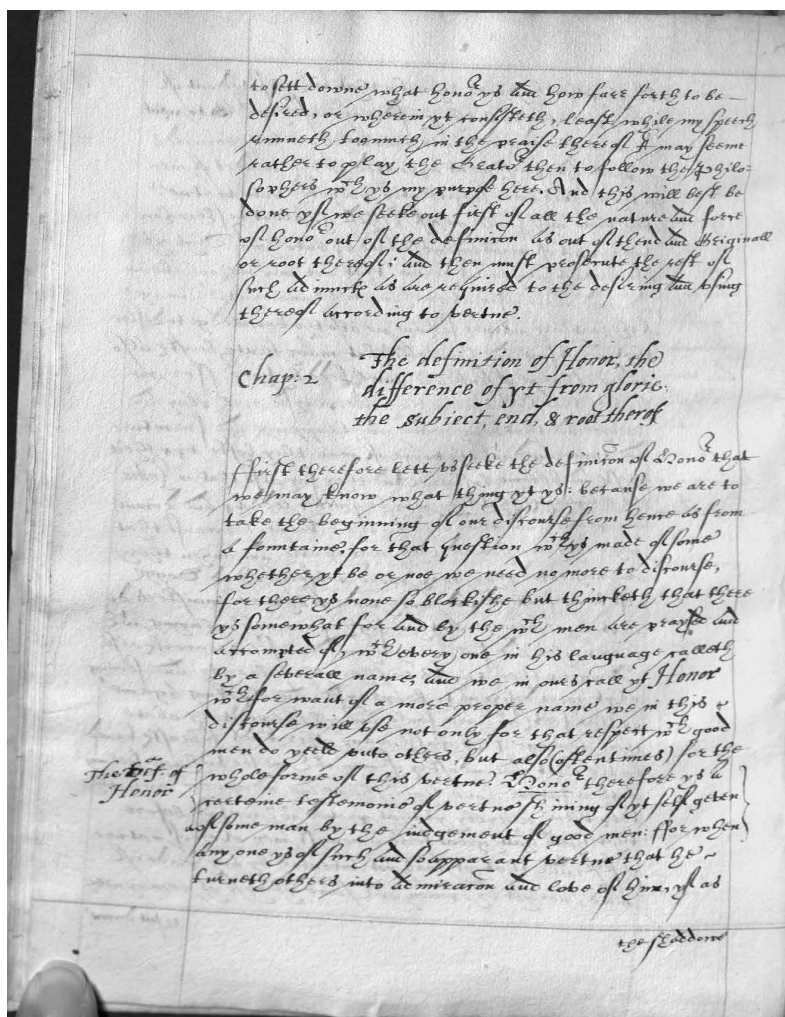 to sett downe what hono^r ys and how farr forth to be –
desired, or wherein yt consisteth, least while my speech
runneth togmuch in the praise thereof I may seeme
rather to play the Orato^r then to follow the Philo=
sophers w^ch ys my purpose here. And this will best be
done yf we seeke out first of all the nature and force
of hono^r out of the definicon as out of thend and Originall
or root thereof; and then must prosecute the rest of
such adiuncts as are required to the desiring and vsing
thereof according to vertue.
Chap: 2 The definition of Honor, the
difference of yt from glorie,
the subiect, end, & root therof
ffirst therefore lett vs seeke the definicon of Hono^r that
we may know what thing yt ys: because we are to
take the beginning of our discourse from hence as from
a fountaine. for that question w^ch ys made of some
whether yt be or noe we need no more to discourse,
for there ys none so blockishe but thincketh that there
ys somewhat for and by the w^ch men are praysed and
accompted of, w^ch every one in his language calleth
by a severall name, and we in ours call yt Honor
w^ch for want of a more proper name we in this
discourse will vse not only for that respect w^ch good
men do yeeld vnto others, but also (oftentimes) for the
whole forme of this vertue. Hono^r therefore ys a
The of
Honor
certeine testemonie of vertue shining of yt self geven
of some man by the iudgement of good men: ffor when
any one ys of such and so apparant vertue that he
turneth others into admiracon and love of him, yf as
the shaddowe